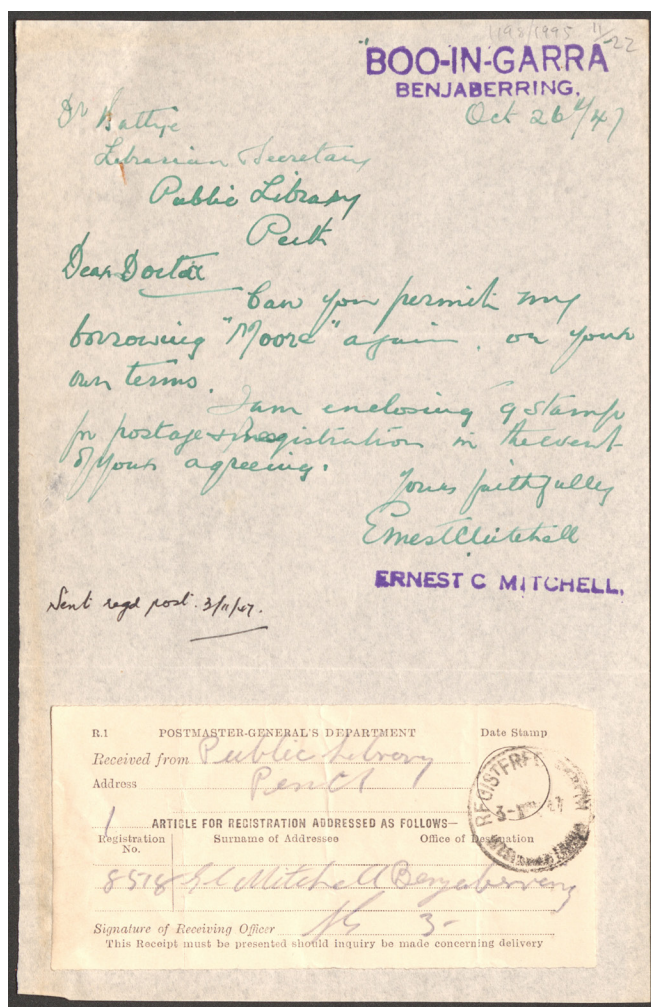 1198/1995 11/22
"BOO-IN-GARRA
BENJABERRING.
Oct 26th/47
Dr Battye
Librarian Secretary
Public Library
Perth
Dear Doctor
Can you permit my
borrowing "Moore" again, on your
own terms.
I am enclosing 9 stamp
for postage & registration in the event
of your agreeing.
Yours faithfully
Ernest C Mitchell
ERNEST C MITCHELL.
Sent regd post. 3/11/47.
R.1 POSTMASTER-GENERAL'S DEPARTMENT Date Stamp
Received from Public Library
Address Perth
REGISTERED
3-
47
1 ARTICLE FOR REGISTRATION ADDRESSED AS FOLLOWS—
Registration No. Surname of Addressee Office of Destination
8518 E C Mitchell Benjaberring
Signature of Receiving Officer 3-
This Receipt must be presented should inquiry be made concerning delivery